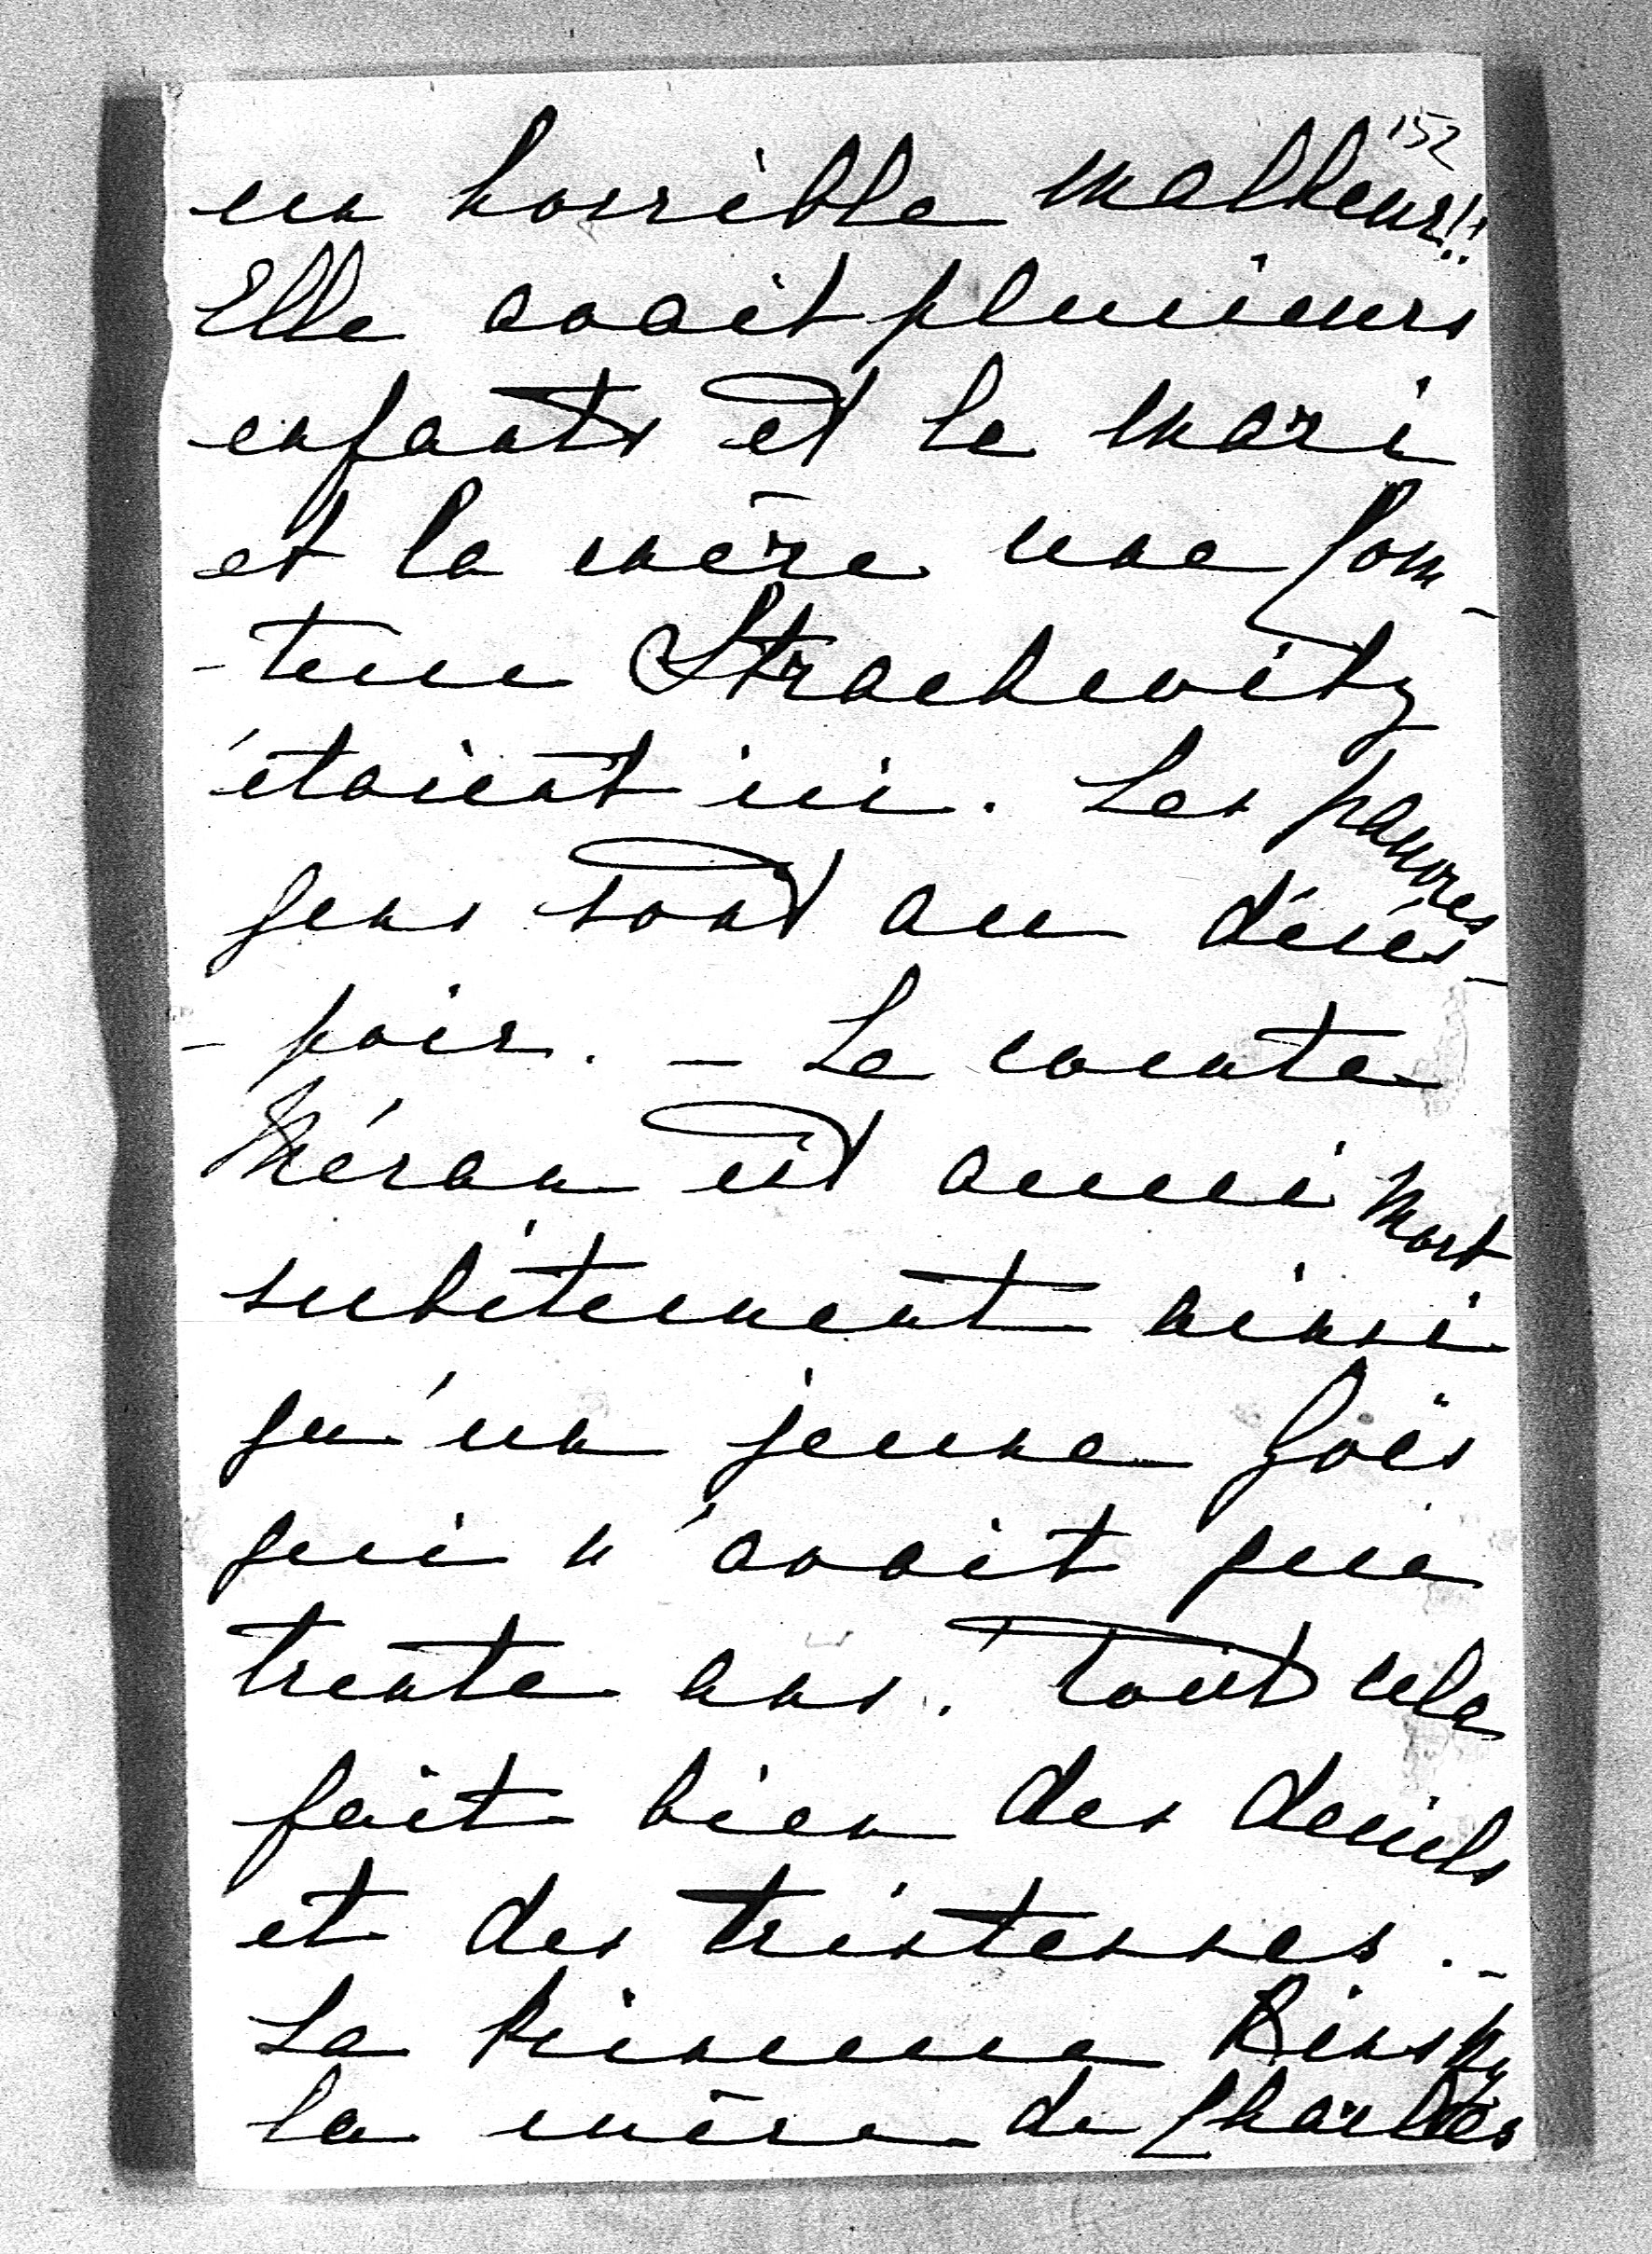 152
un horrible malheur!!
Elle avait plusieurs
enfants et le mari
et la mère une Com-
-tesse Strachwitz
étaient ici. Les pauvres
gens sont au déses-
-poir. - Le comte
Méran est aussi mort
subitement ainsi
qu'un jeune Goës
qui n'avait que
trente ans. Tout cela
fait bien des deuils
et des tristesses. -
La Princesse Kinsky
la mère de Charles